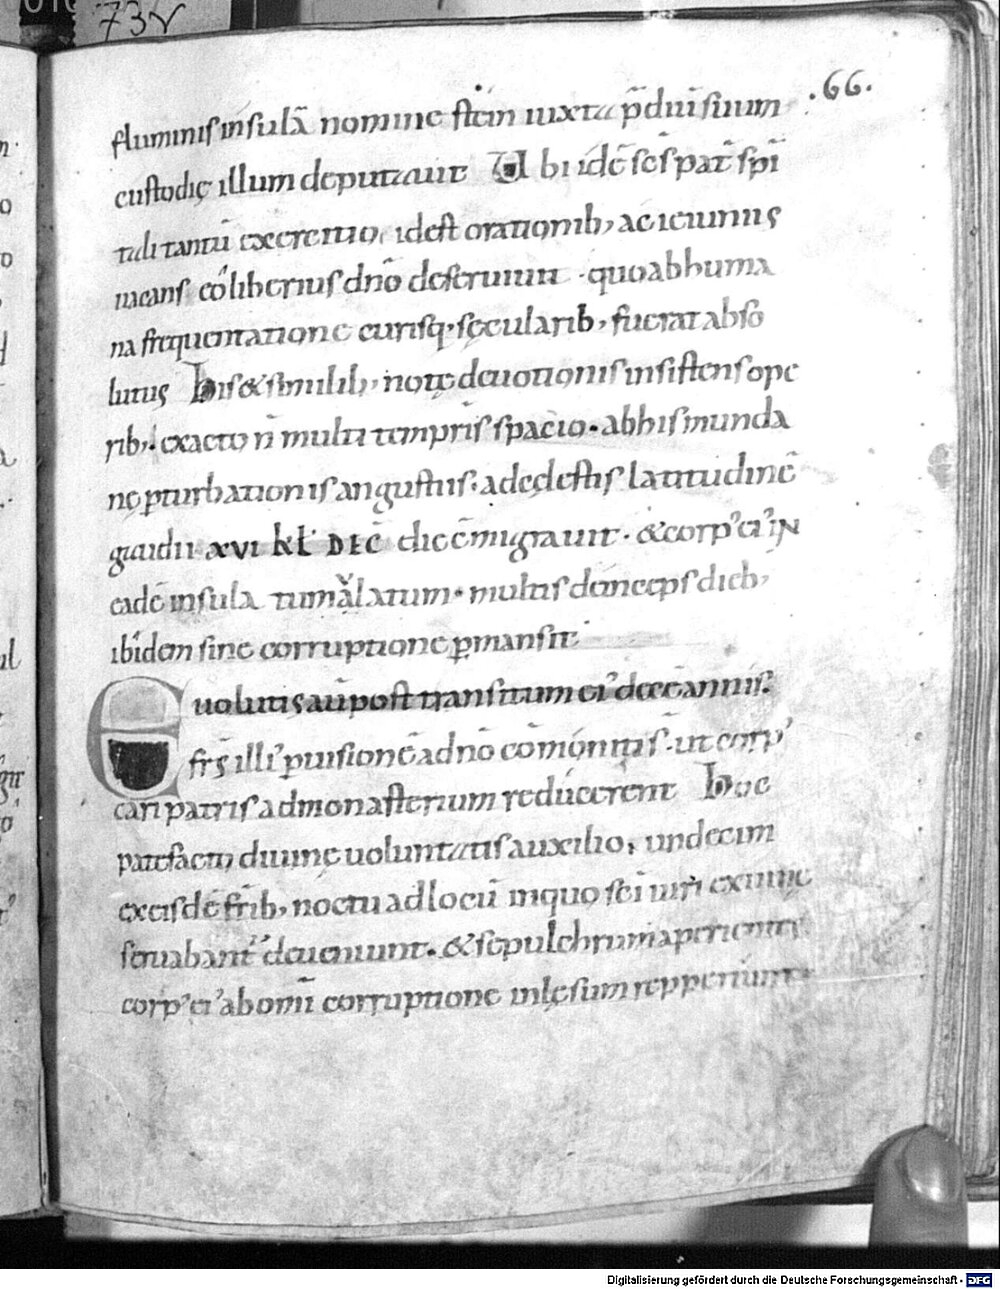 73v
.66.
fluminis insulā nomine stein iuxta p̄diuisium
custodię illum deputauit Ubi idē scs pat̄ sp̄i
tali tantū exercitio, idest orationib; ac ieiuniis
uacans cōliberius dn̄o deseruiuit . quo ab huma
na frequentatione curisq; sęcularib; fuerat abso
lutus His & similib; notę deuotionis insistens ope
rib;. exacto n̄ multi tempris spacio. ab his munda
nę pturbationis angustiis. ad cęlestis latitudinē
gaudii xvi kl dec die ē migrauit. & corp' ei' in
eadē insula tumulatum. multis deinceps dieb;
ibidem sine corruptione pmansit
Euolutis aū post transitum ei' decē annis.
frs illi' puisione a dn̄o cōmoniti s̄. ut corp'
cari patris ad monasterium reducerent Huc
patefacto diuinę uoluntatis auxilio, undecim
ex eisdē frib; noctu ad locū in quo sci uiri exuuię
seruabant' deueniunt. & sepulchrum aperientes
corp' ei' ab omi corruptione inlęsum repperiunt
Digitalisierung gefördert durch die Deutsche Forschungsgemeinschaft - DFG